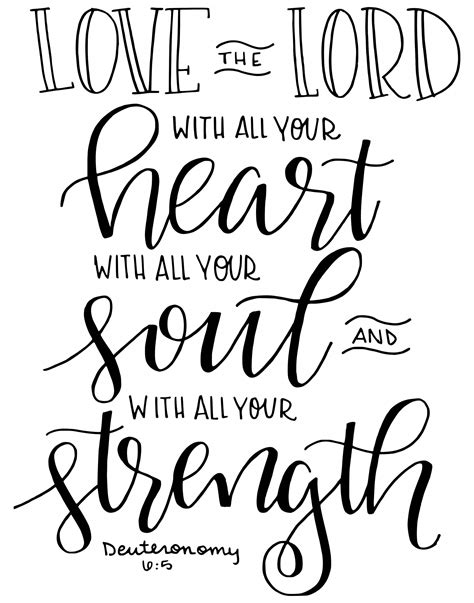 LOVE THE LORD
WITH ALL YOUR
heart
WITH ALL YOUR
soul AND
WITH ALL YOUR
strength
Deuteronomy
6:5